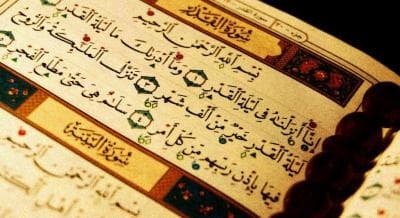 سُورَةُ الْقَدْرِ
بِسْمِ اللَّهِ الرَّحْمَٰنِ الرَّحِيمِ
إِنَّا أَنزَلْنَٰهُ فِى لَيْلَةِ الْقَدْرِ ۝ وَمَا أَدْرَىٰكَ مَا لَيْلَةُ الْقَدْرِ
لَيْلَةُ الْقَدْرِ خَيْرٌ مِّنْ أَلْفِ شَهْرٍ ۝ تَنَزَّلُ الْمَلَٰٓئِكَةُ وَالرُّوحُ
فِيهَا بِإِذْنِ رَبِّهِم مِّن كُلِّ أَمْرٍ ۝ سَلَٰمٌ هِىَ حَتَّىٰ مَطْلَعِ الْفَجْرِ
سُورَةُ الْبَيِّنَةِ
بِسْمِ اللَّهِ الرَّحْمَٰنِ الرَّحِيمِ